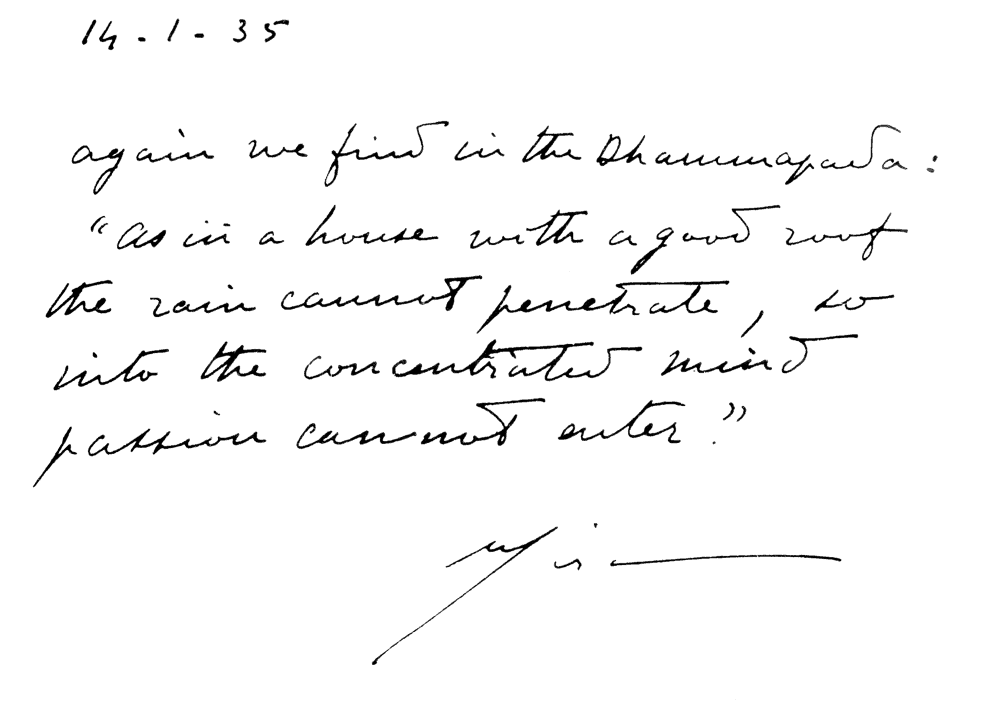 14-1-35
again we find in the Dhammapada:
"as in a house with a good roof
the rain cannot penetrate, so
into the concentrated mind
passion cannot enter."
Mira